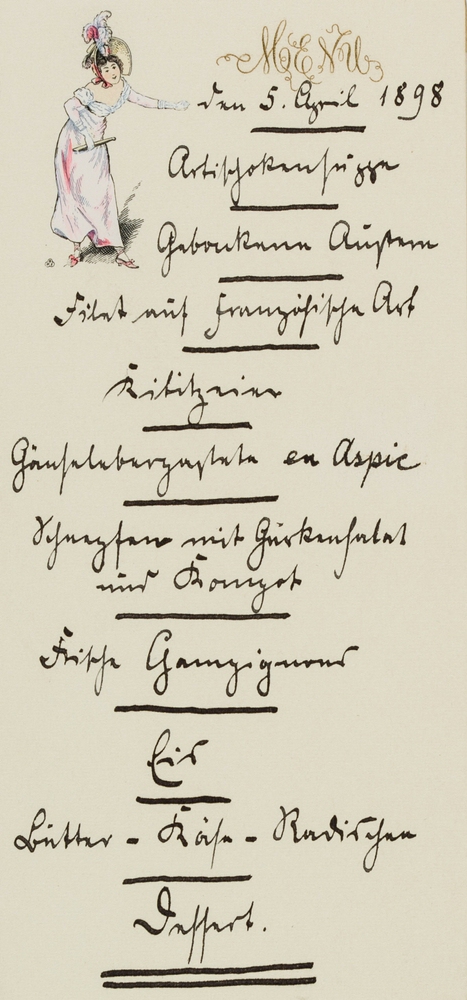 MENU
den 5. April 1898
Artischokensuppe
Gebackene Austern
Filet auf französische Art
Kibitzeier
Gänseleberpastete en Aspic
Schnepfen mit Gurkensalat
und Kompot
Frische Champignons
Eis
Butter - Käse - Radischen
Dessert.